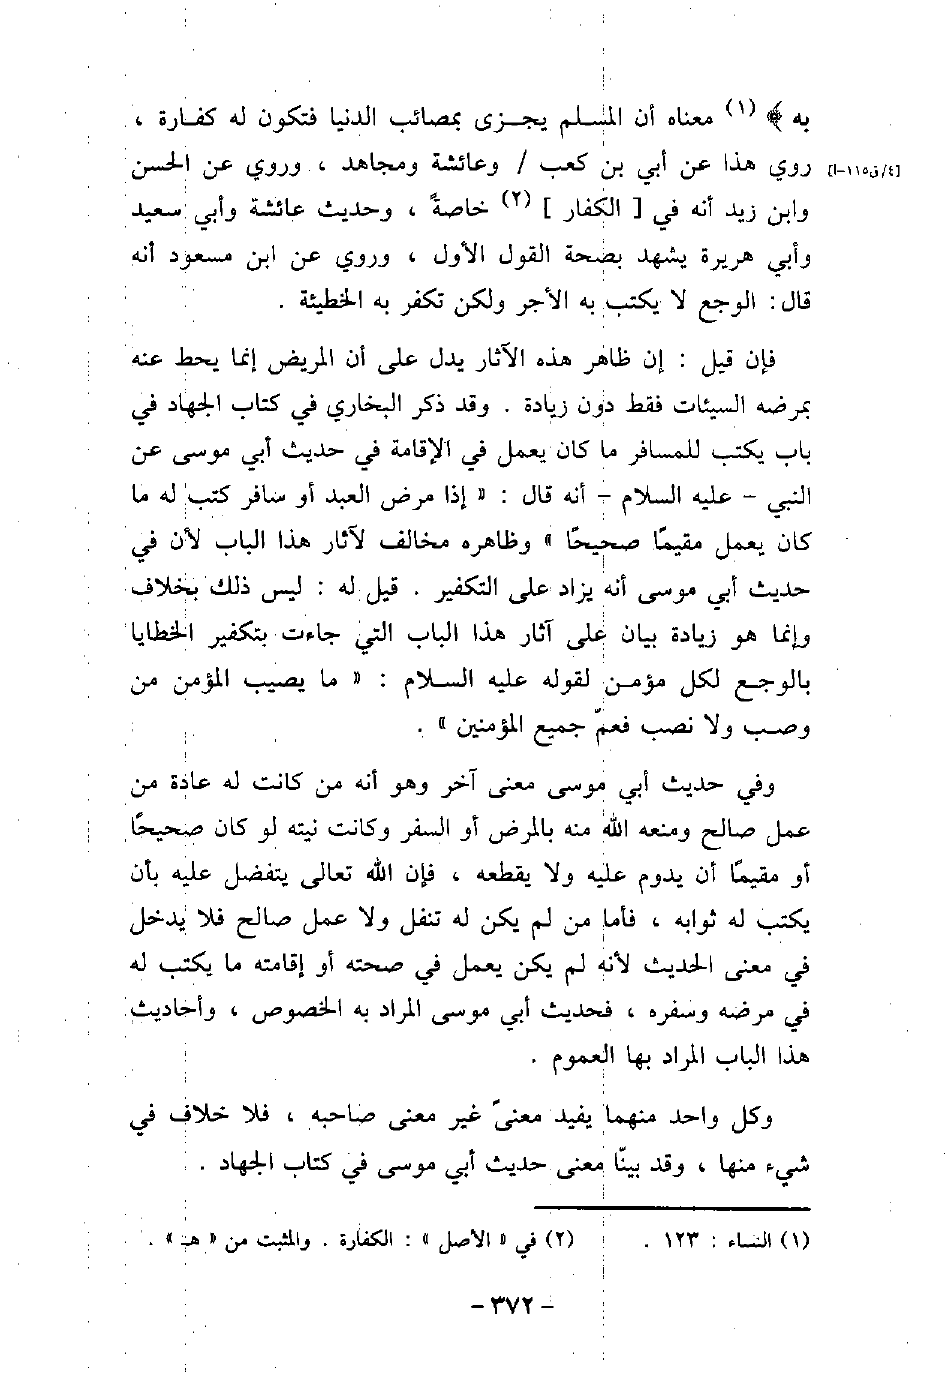 به ﴾ (١) معناه أن المسلم يجزى بمصائب الدنيا فتكون له كفارة ،
روي هذا عن أبي بن كعب / وعائشة ومجاهد ، وروي عن الحسن [٤/ق١١٥-أ]
وابن زيد أنه في [ الكفار ] (٢) خاصةً ، وحديث عائشة وأبي سعيد
وأبي هريرة يشهد بصحة القول الأول ، وروي عن ابن مسعود أنه
قال : الوجع لا يكتب به الأجر ولكن تكفر به الخطيئة .
فإن قيل : إن ظاهر هذه الآثار يدل على أن المريض إنما يحط عنه
بمرضه السيئات فقط دون زيادة . وقد ذكر البخاري في كتاب الجهاد في
باب يكتب للمسافر ما كان يعمل في الإقامة في حديث أبي موسى عن
النبي - عليه السلام - أنه قال : « إذا مرض العبد أو سافر كتب له ما
كان يعمل مقيمًا صحيحًا » وظاهره مخالف لآثار هذا الباب لأن في
حديث أبي موسى أنه يزاد على التكفير . قيل له : ليس ذلك بخلاف
وإنما هو زيادة بيان على آثار هذا الباب التي جاءت بتكفير الخطايا
بالوجع لكل مؤمن لقوله عليه السلام : « ما يصيب المؤمن من
وصب ولا نصب فعمّ جميع المؤمنين » .
وفي حديث أبي موسى معنى آخر وهو أنه من كانت له عادة من
عمل صالح ومنعه الله منه بالمرض أو السفر وكانت نيته لو كان صحيحًا
أو مقيمًا أن يدوم عليه ولا يقطعه ، فإن الله تعالى يتفضل عليه بأن
يكتب له ثوابه ، فأما من لم يكن له تنفل ولا عمل صالح فلا يدخل
في معنى الحديث لأنه لم يكن يعمل في صحته أو إقامته ما يكتب له
في مرضه وسفره ، فحديث أبي موسى المراد به الخصوص ، وأحاديث
هذا الباب المراد بها العموم .
وكل واحد منهما يفيد معنىً غير معنى صاحبه ، فلا خلاف في
شيء منها ، وقد بينّا معنى حديث أبي موسى في كتاب الجهاد .
(١) النساء : ١٢٣ . (٢) في « الأصل » : الكفارة . والمثبت من « هـ » .
- ٣٧٢ -